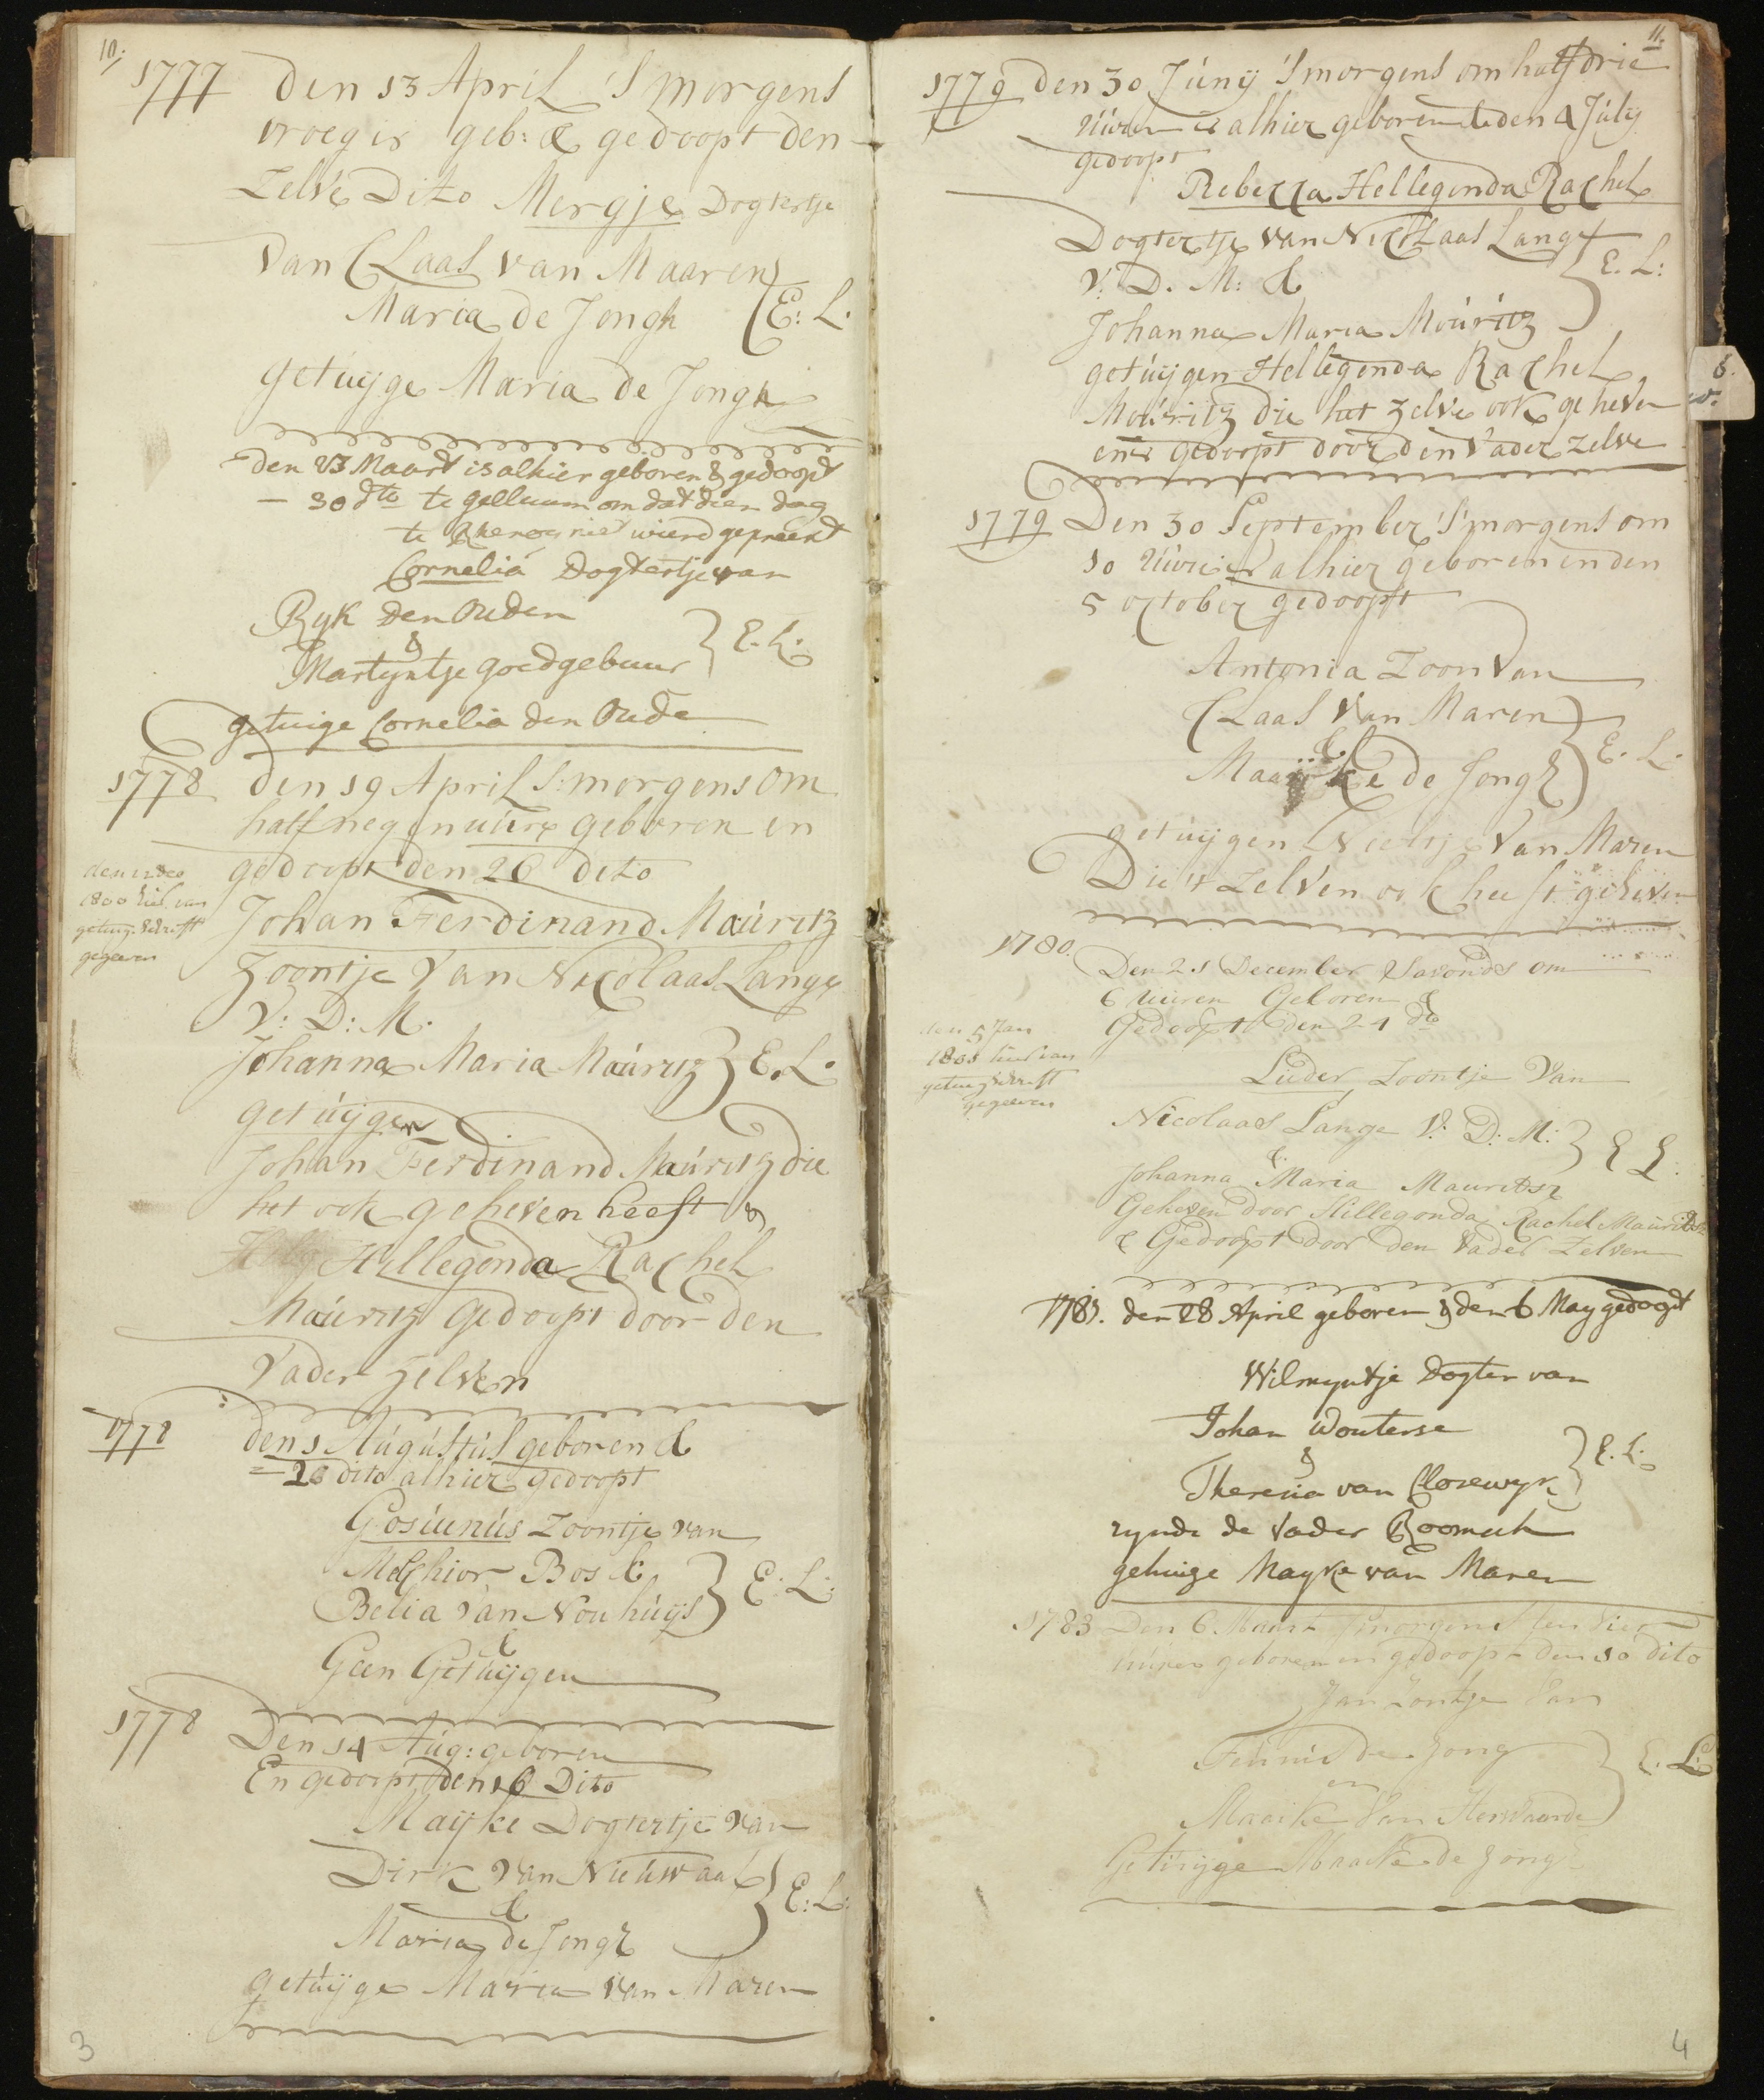 10.
1777 den 13 April 'S morgens
vroeg is geb: & gedoopt den
Zelve Dito Mergje Dogtertje
van Claas van Maaren
Maria de Jongh } E: L.
getuijge Maria de Jongh
den 23 Maart is alhier geboren & gedoopt
— 30 dto te gellicum om dat dien dag
te Rhenoy niet wierd gepreekt
Cornelia Dogtertje van
Ryk den Ouden
&
Martyntje goedgebuur } E. L.
getuige Cornelia den Oude
1778 den 19 April S: morgens om
half negen uúre geboren en
gedoopt den 26 dito
den 12 Dec
1800 hiel van
getuig schrift
gegeven
Johan Ferdinand Maúritz
Zoontje Van Nicolaas Lange
V: D: M.
Johanna Maria Maúritz } E. L.
getúijgen
Johan Ferdinand Maúritz die
het ook geheven heeft &
Hellegonda Rachel
Maúritz gedoopt door den
Vader zelven
1778 den 1 Aúgústús geboren &
— 26 dito alhier gedoopt
Gosúinús Zoontje van
Melchior Bos &
Belia van Nouhúijs } E: L:
Geen Getúijgen
1778 Den 14 Aúg: geboren
En gedoopt den 16 Dito
Maijke Dogtertje van
Dirk van Nieúwaal
&
Maria de Jongh } E: L.
getúijge Maria van Maren
3
11.
1779 den 30 Júnij 'S morgens om half drie
Uúren is alhier geboren & den 4 Júlij
gedoopt
Rebecca Hellegonda Rachel
Dogtertje van Nicolaas Lange
V. D. M: &
Johanna Maria Moúritz } E. L:
getúijgen Hellegonda Rachel
Moúritz die het zelve ook geheven
en is gedoopt door den Vader zelve
1779 Den 30 September 'S morgens om
10 Uúre is alhier geboren en den
5 october gedoopt
Antonia Zoon Van
Claas Van Maren
&
Maaijke de Jongh } E. L.
getúijgen Neeltje Van Maren
Die 't Zelven ook heeft geheven
1780. Den 21 December Savonds om
6 Uúren Geboren &
Gedoopt den 24 do
den 5 Jan
1805 hier van
getuigschrift
gegeven
Lúder Zoontje Van
Nicolaas Lange V: D: M:
&
Johanna Maria Mauritsz } E L.
Geheven door Hillegonda Rachel Mauritsz
& Gedoopt door den Vader Zelven
1781. den 28 April geboren & den 6 May gedoopt
Wilmyntje Dogter van
Johan Wouterse
&
Theresia van Clorewyk } E. L.
zynde de Vader Roomsch
getuige Mayke van Maren
1783 Den 6 Maart smorgens ten vier
uúren geboren en gedoopt den 10 dito
Jan Zontje Van
Teúnis de Jong
en
Maaike Van Herwaarde } E. L:
Getúijge Maaike de Jong
4